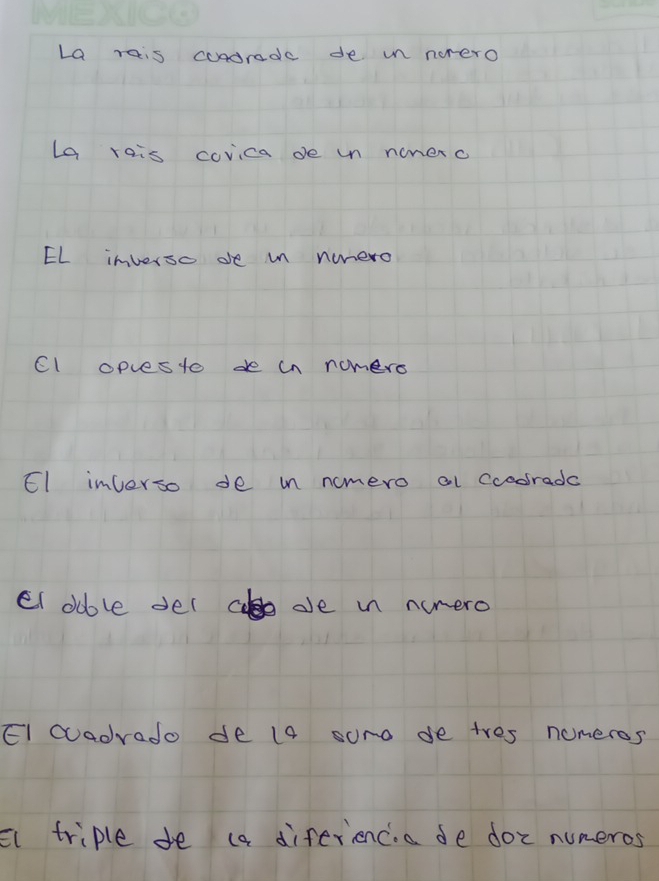 MEXICO
La rais cuadrada de un numero
La rais cuvica de un numero
EL imverso de un numero
El opuesto de un numero
El imverso de un numero al cuadrado
El doble del cubo de un numero
El cuadrado de la suma de tres numeros
El triple de la diferiencia de doz numeros